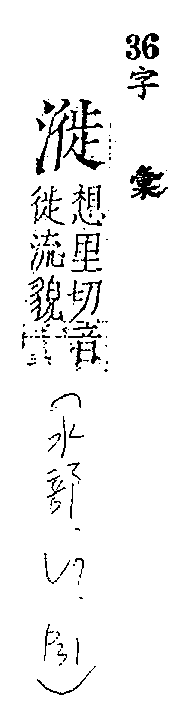 36
字彙
漇
想里切音
徙流貌
（水部